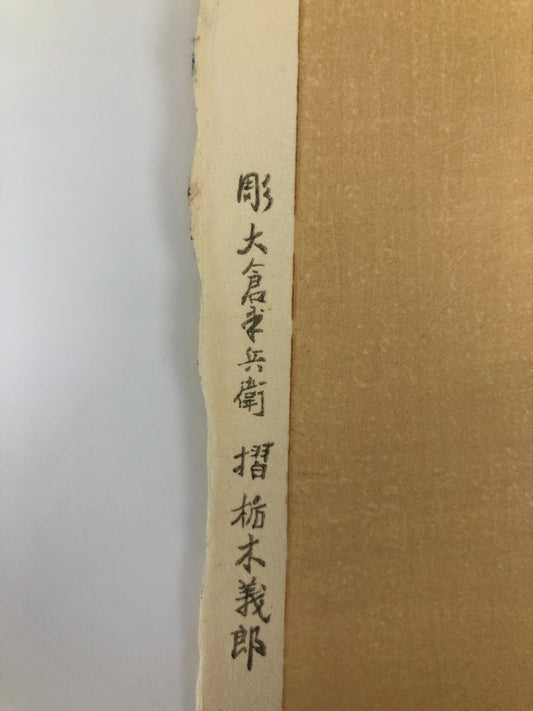 彫大倉半兵衛 摺栃木義郎